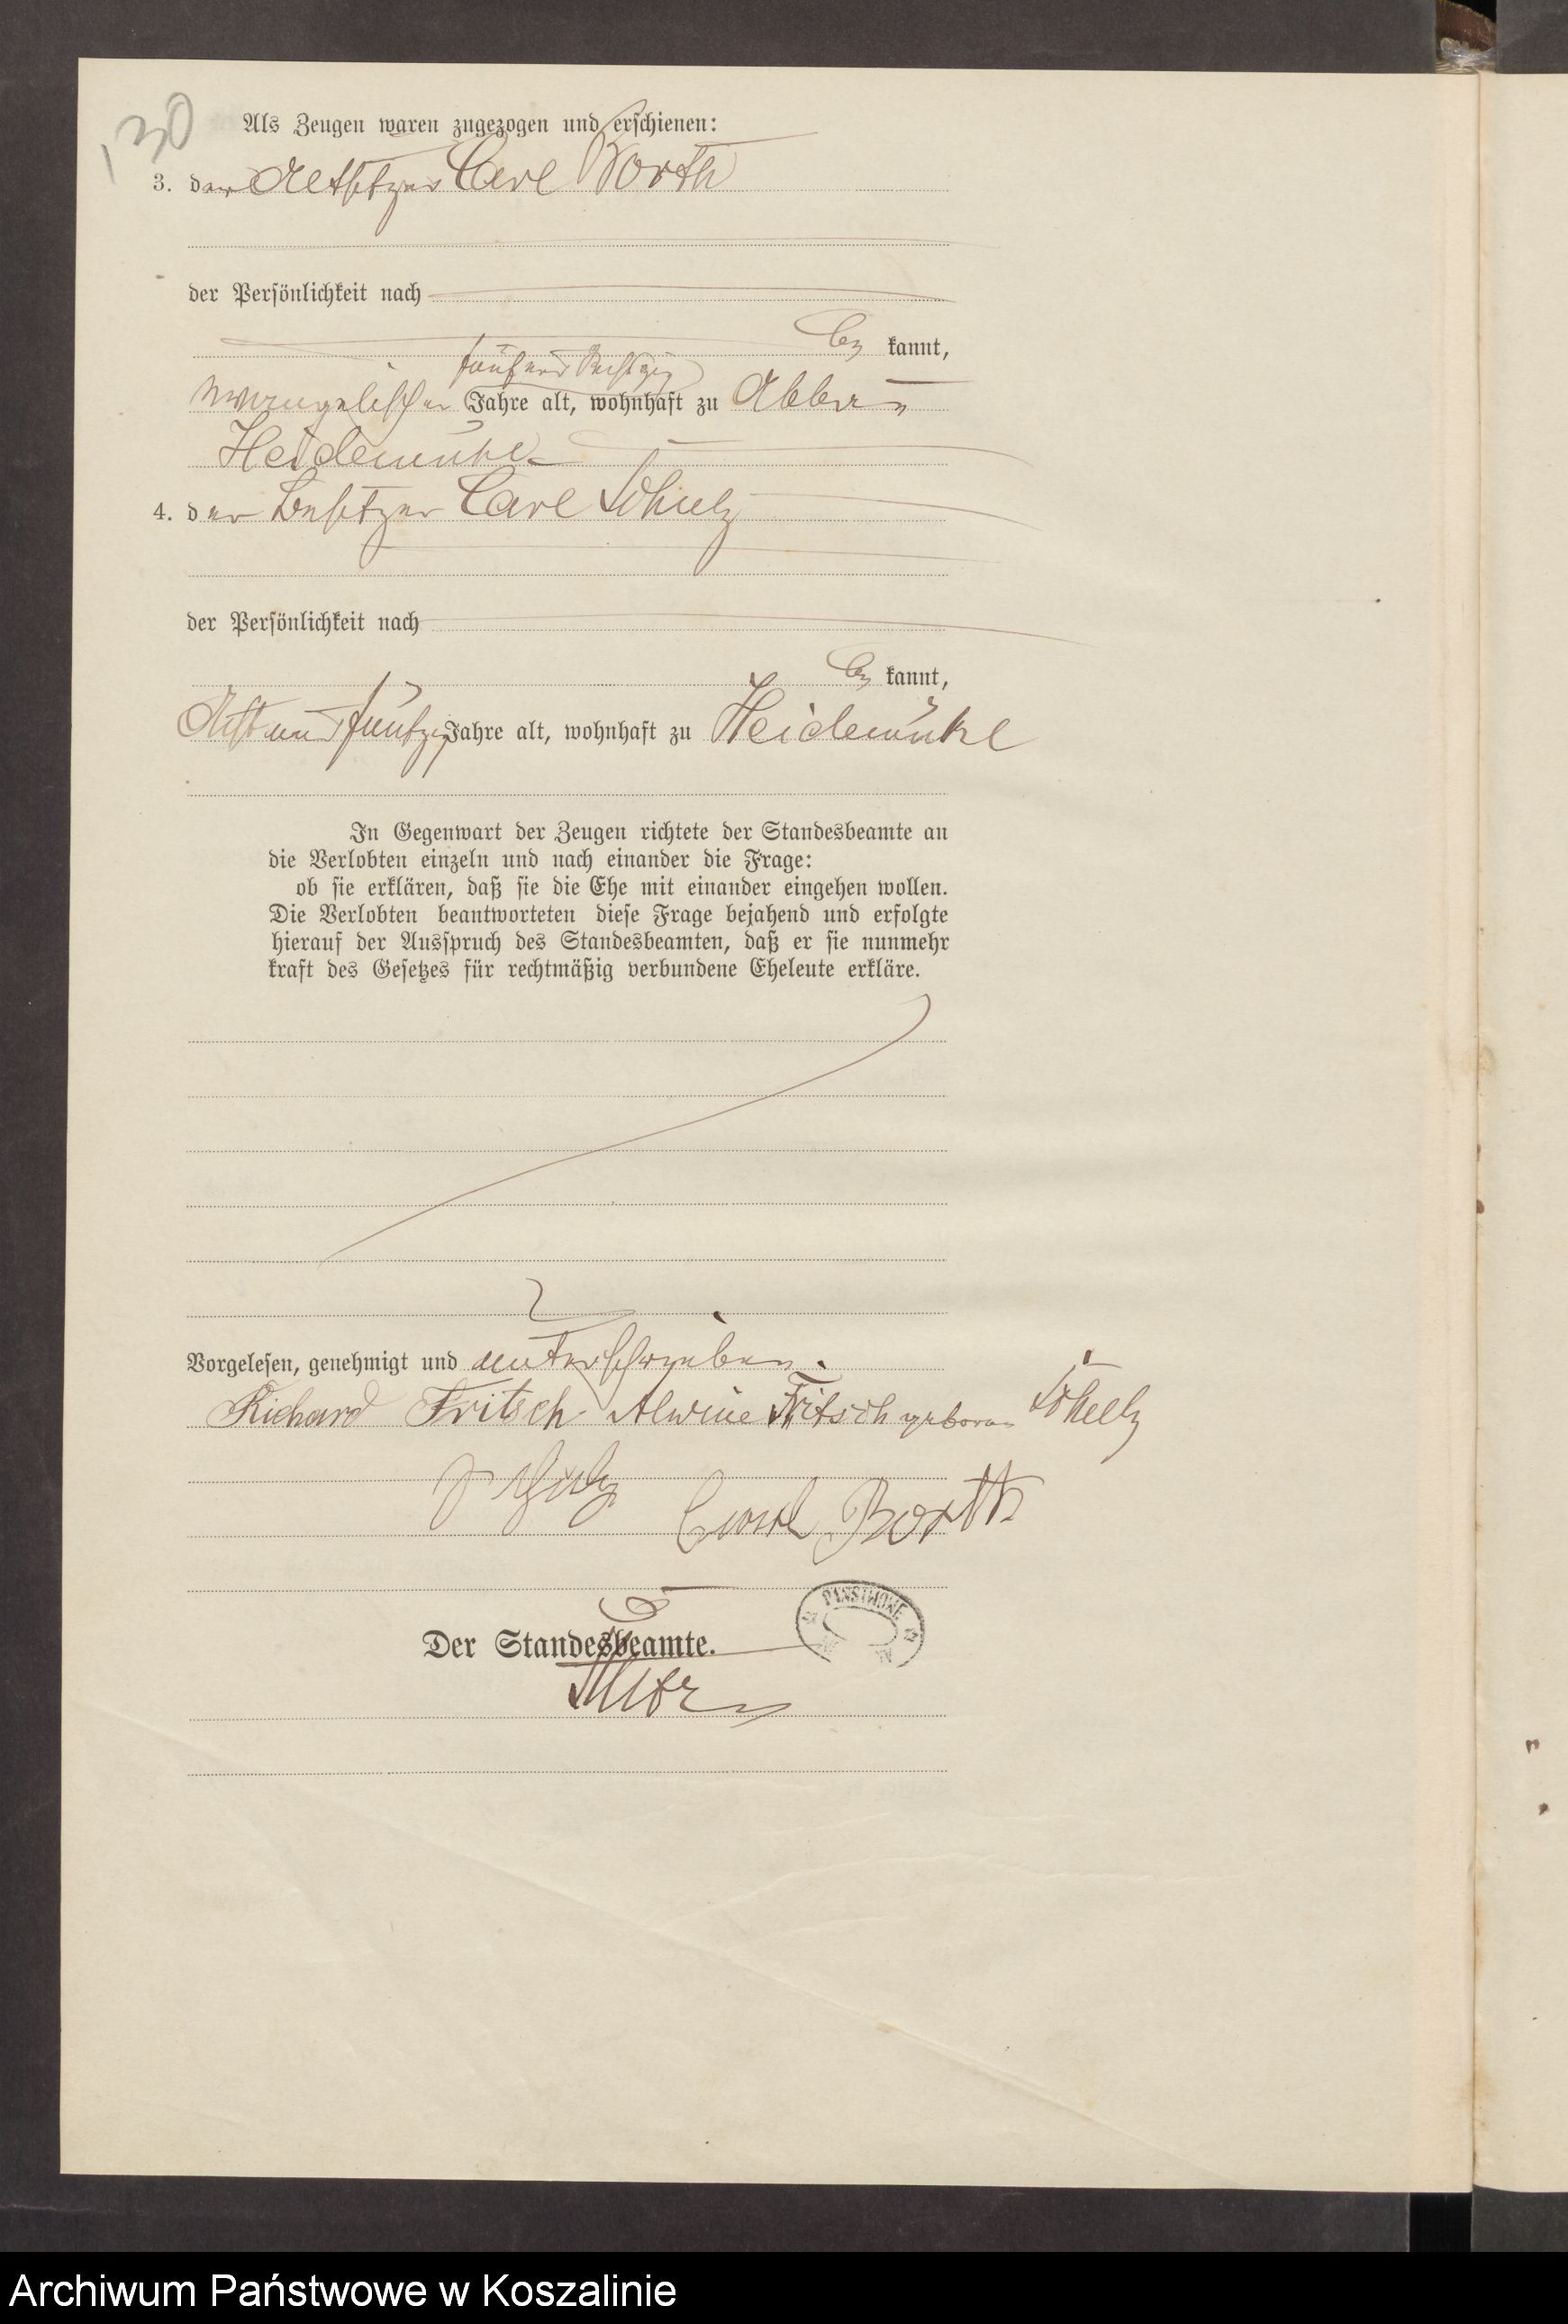 130
Als Zeugen waren zugezogen und erschienen:
3. der Altsitzer Carl Borth
der Persönlichkeit nach
be kannt,
fünf und sechszig
Jahre alt, wohnhaft zu Abbau
Heidemühl
4. der Besitzer Carl Schulz
der Persönlichkeit nach
be kannt,
Acht und fünfzig Jahre alt, wohnhaft zu Heidemühl
In Gegenwart der Zeugen richtete der Standesbeamte an
die Verlobten einzeln und nach einander die Frage:
ob sie erklären, daß sie die Ehe mit einander eingehen wollen.
Die Verlobten beantworteten diese Frage bejahend und erfolgte
hierauf der Ausspruch des Standesbeamten, daß er sie nunmehr
kraft des Gesetzes für rechtmäßig verbundene Eheleute erkläre.
Vorgelesen, genehmigt und unterschrieben.
Richard Fritsch Alwine Fritsch geboren Schulz
Schulz
Carl Borth
PAŃSTWOWE
Der Standesbeamte.
Archiwum Państwowe w Koszalinie